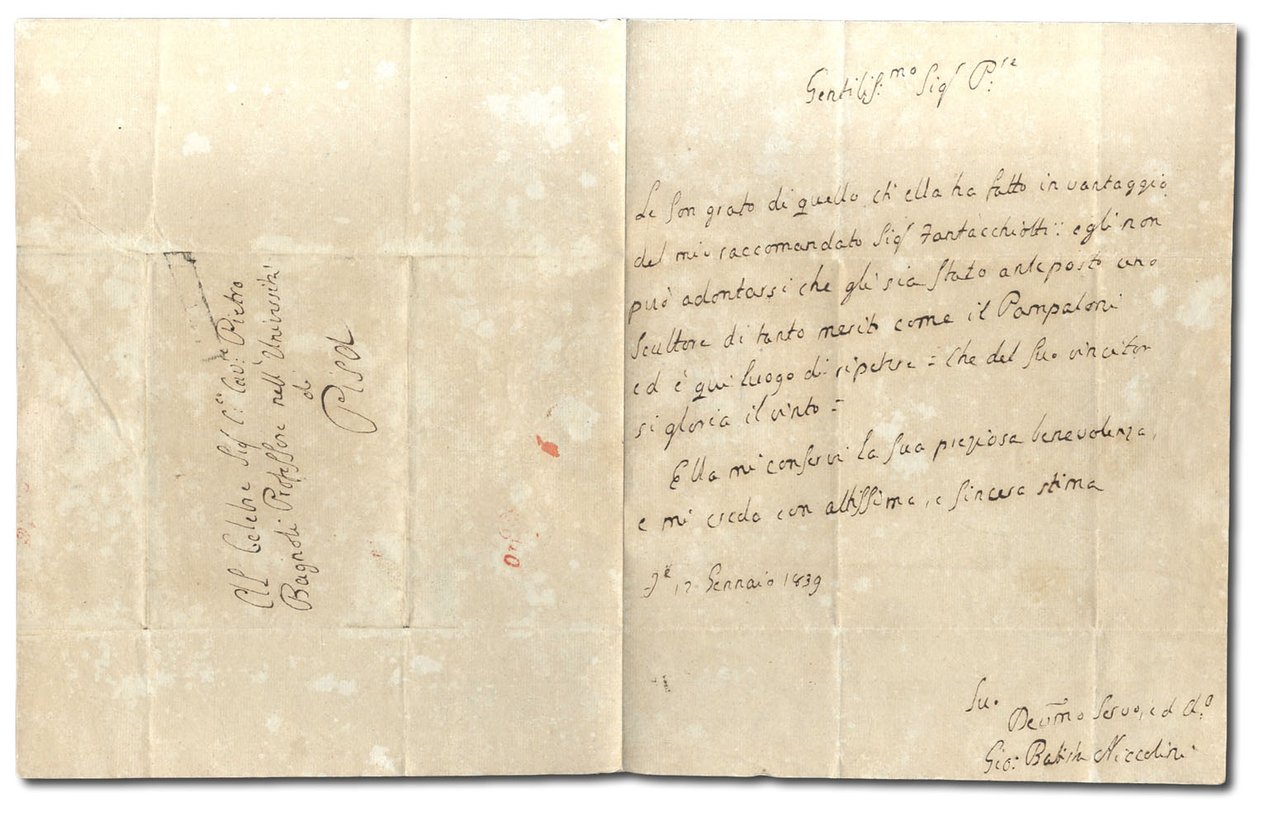 Al Celebre Sig.r C.e Cav.re Pietro
Bagnoli Professore nell'Università
di
Pisa
Gentiliss.mo Sig.r P.re
Le son grato di quello ch'ella ha fatto in vantaggio
del mio raccomandato Sig.r Fantacchiotti: egli non
può adontarsi che gli sia stato anteposto uno
scultore di tanto merito come il Pampaloni
ed è qui luogo di ripetere = Che del suo vincitor
si gloria il vinto =
Ella mi conservi la sua preziosa benevolenza,
e mi creda con altissima, e sincera stima
12 Gennaio 1839
Suo
Dev.mo Servo, ed A.o
Gio: Batista Niccolini